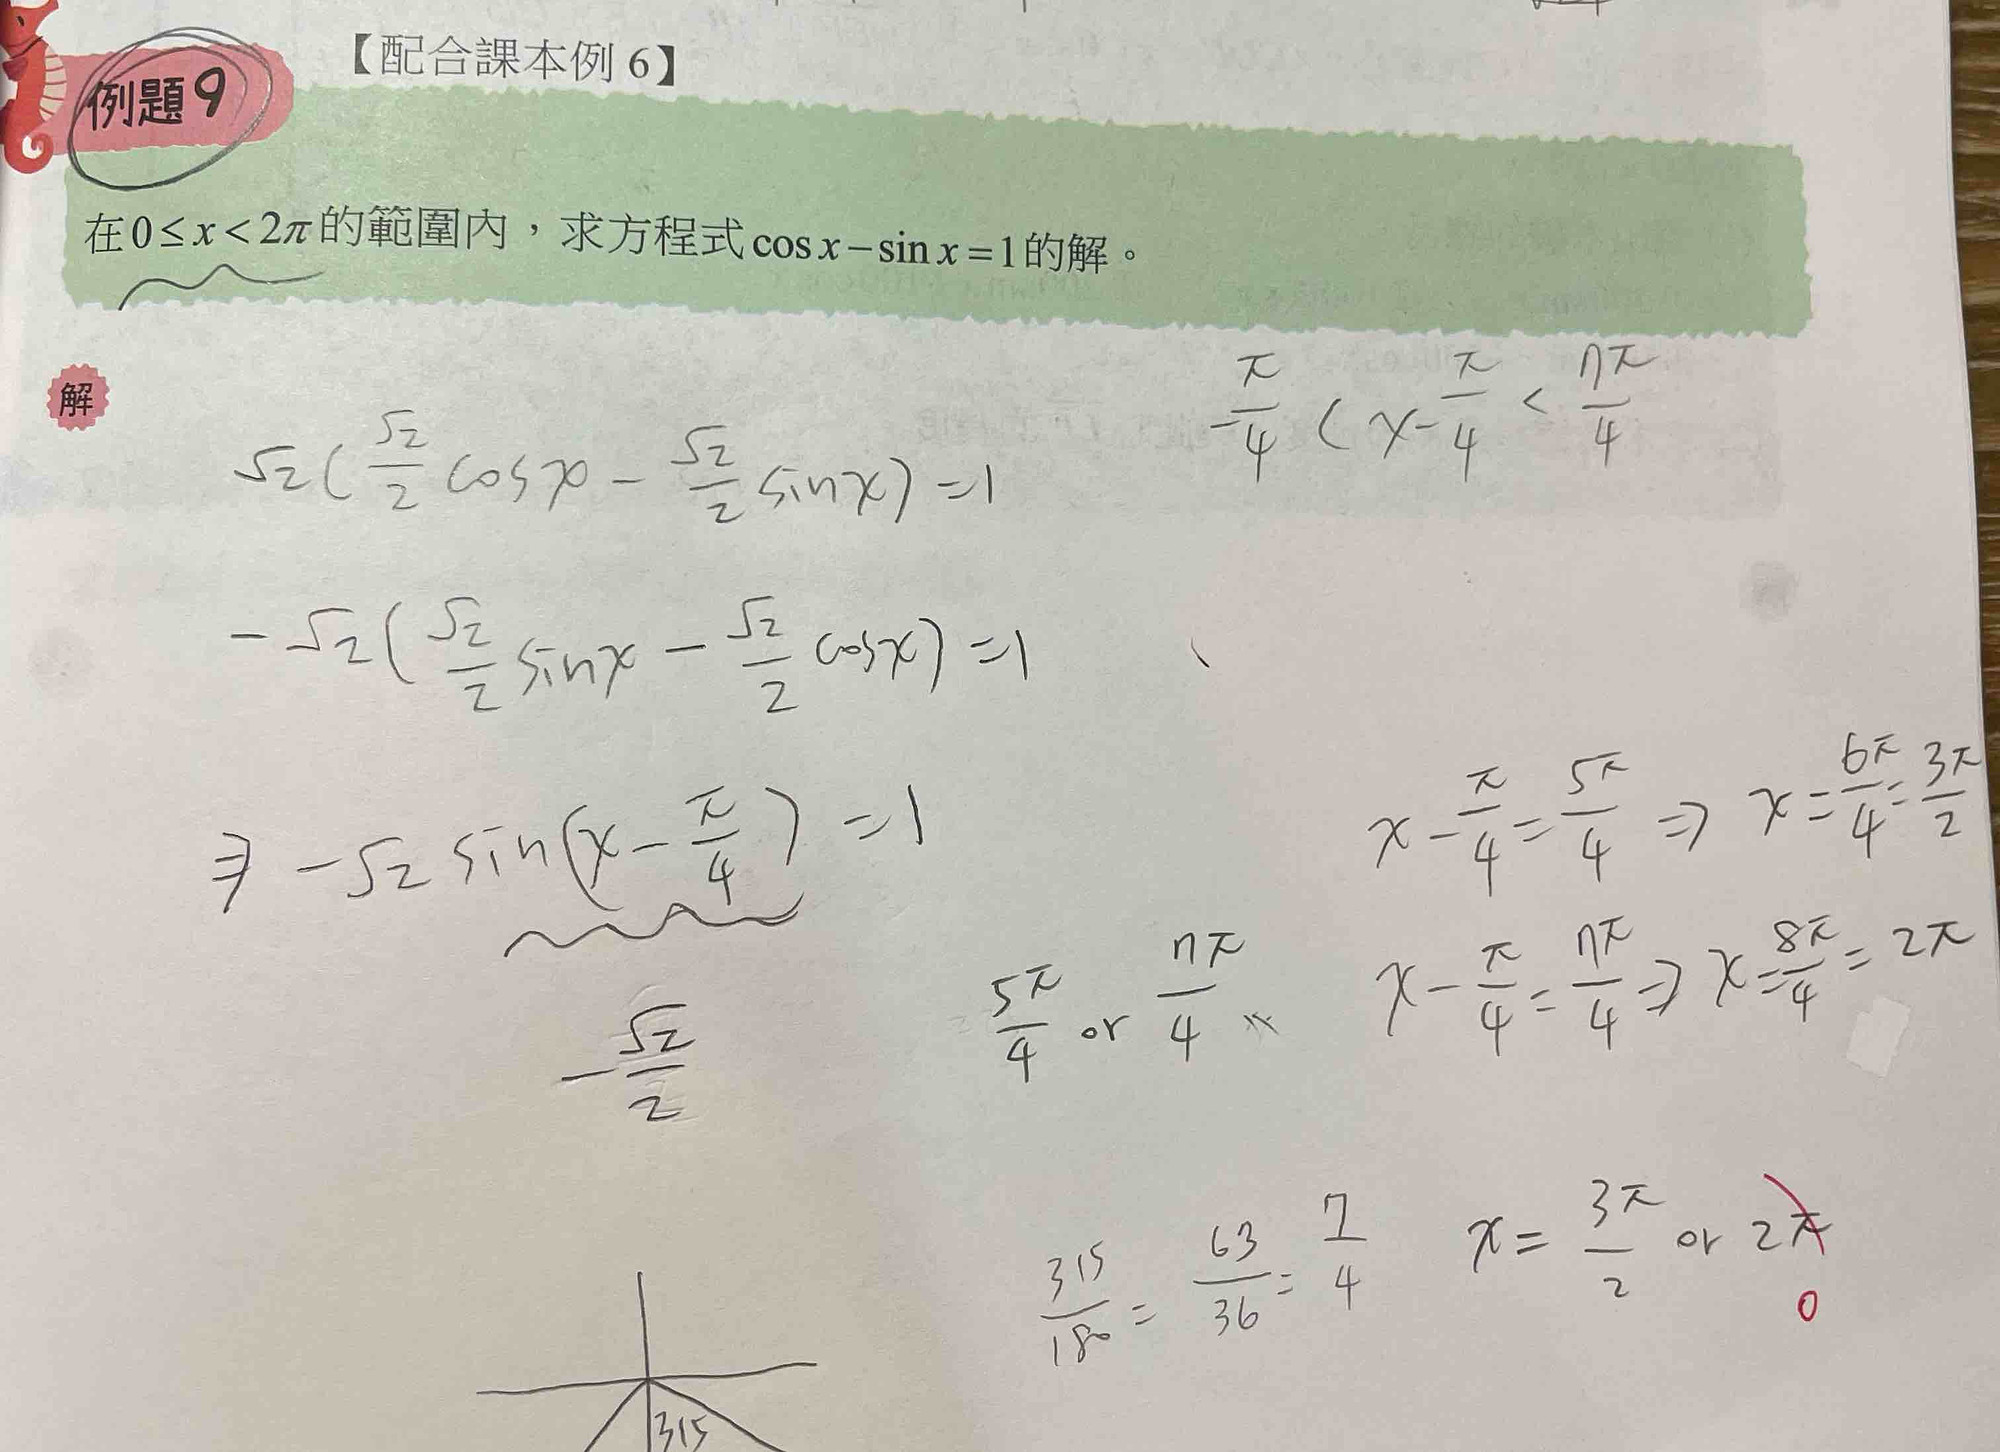 【配合課本例 6】
例題9
在0≤x<2π的範圍內，求方程式cos x−sin x=1的解。
解
-π/4 < x-π/4 < 7π/4
√2(√2/2 cosx - √2/2 sinx) =1
-√2(√2/2 sinx - √2/2 cosx) =1
⇒ -√2 sin(x-π/4) =1
x-π/4=5π/4 ⇒ x=6π/4=3π/2
-√2/2
5π/4 or 7π/4
x-π/4=7π/4 ⇒ x=8π/4=2π
315/180=63/36=7/4
x=3π/2 or 2π
0
315